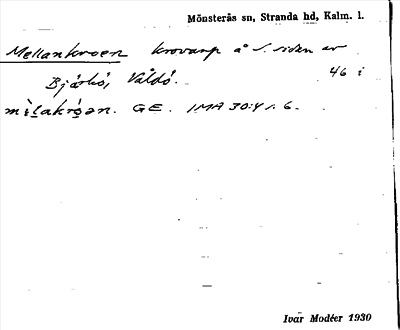 Mönsterås sn, Stranda hd, Kalm. l.
Mellankroen krovarp å S. siden av
Björkö, Vållö. 46 i
mìlakrǫ́ən. GE. IMA 30:4 s. 6.
Ivar Modéer 1930